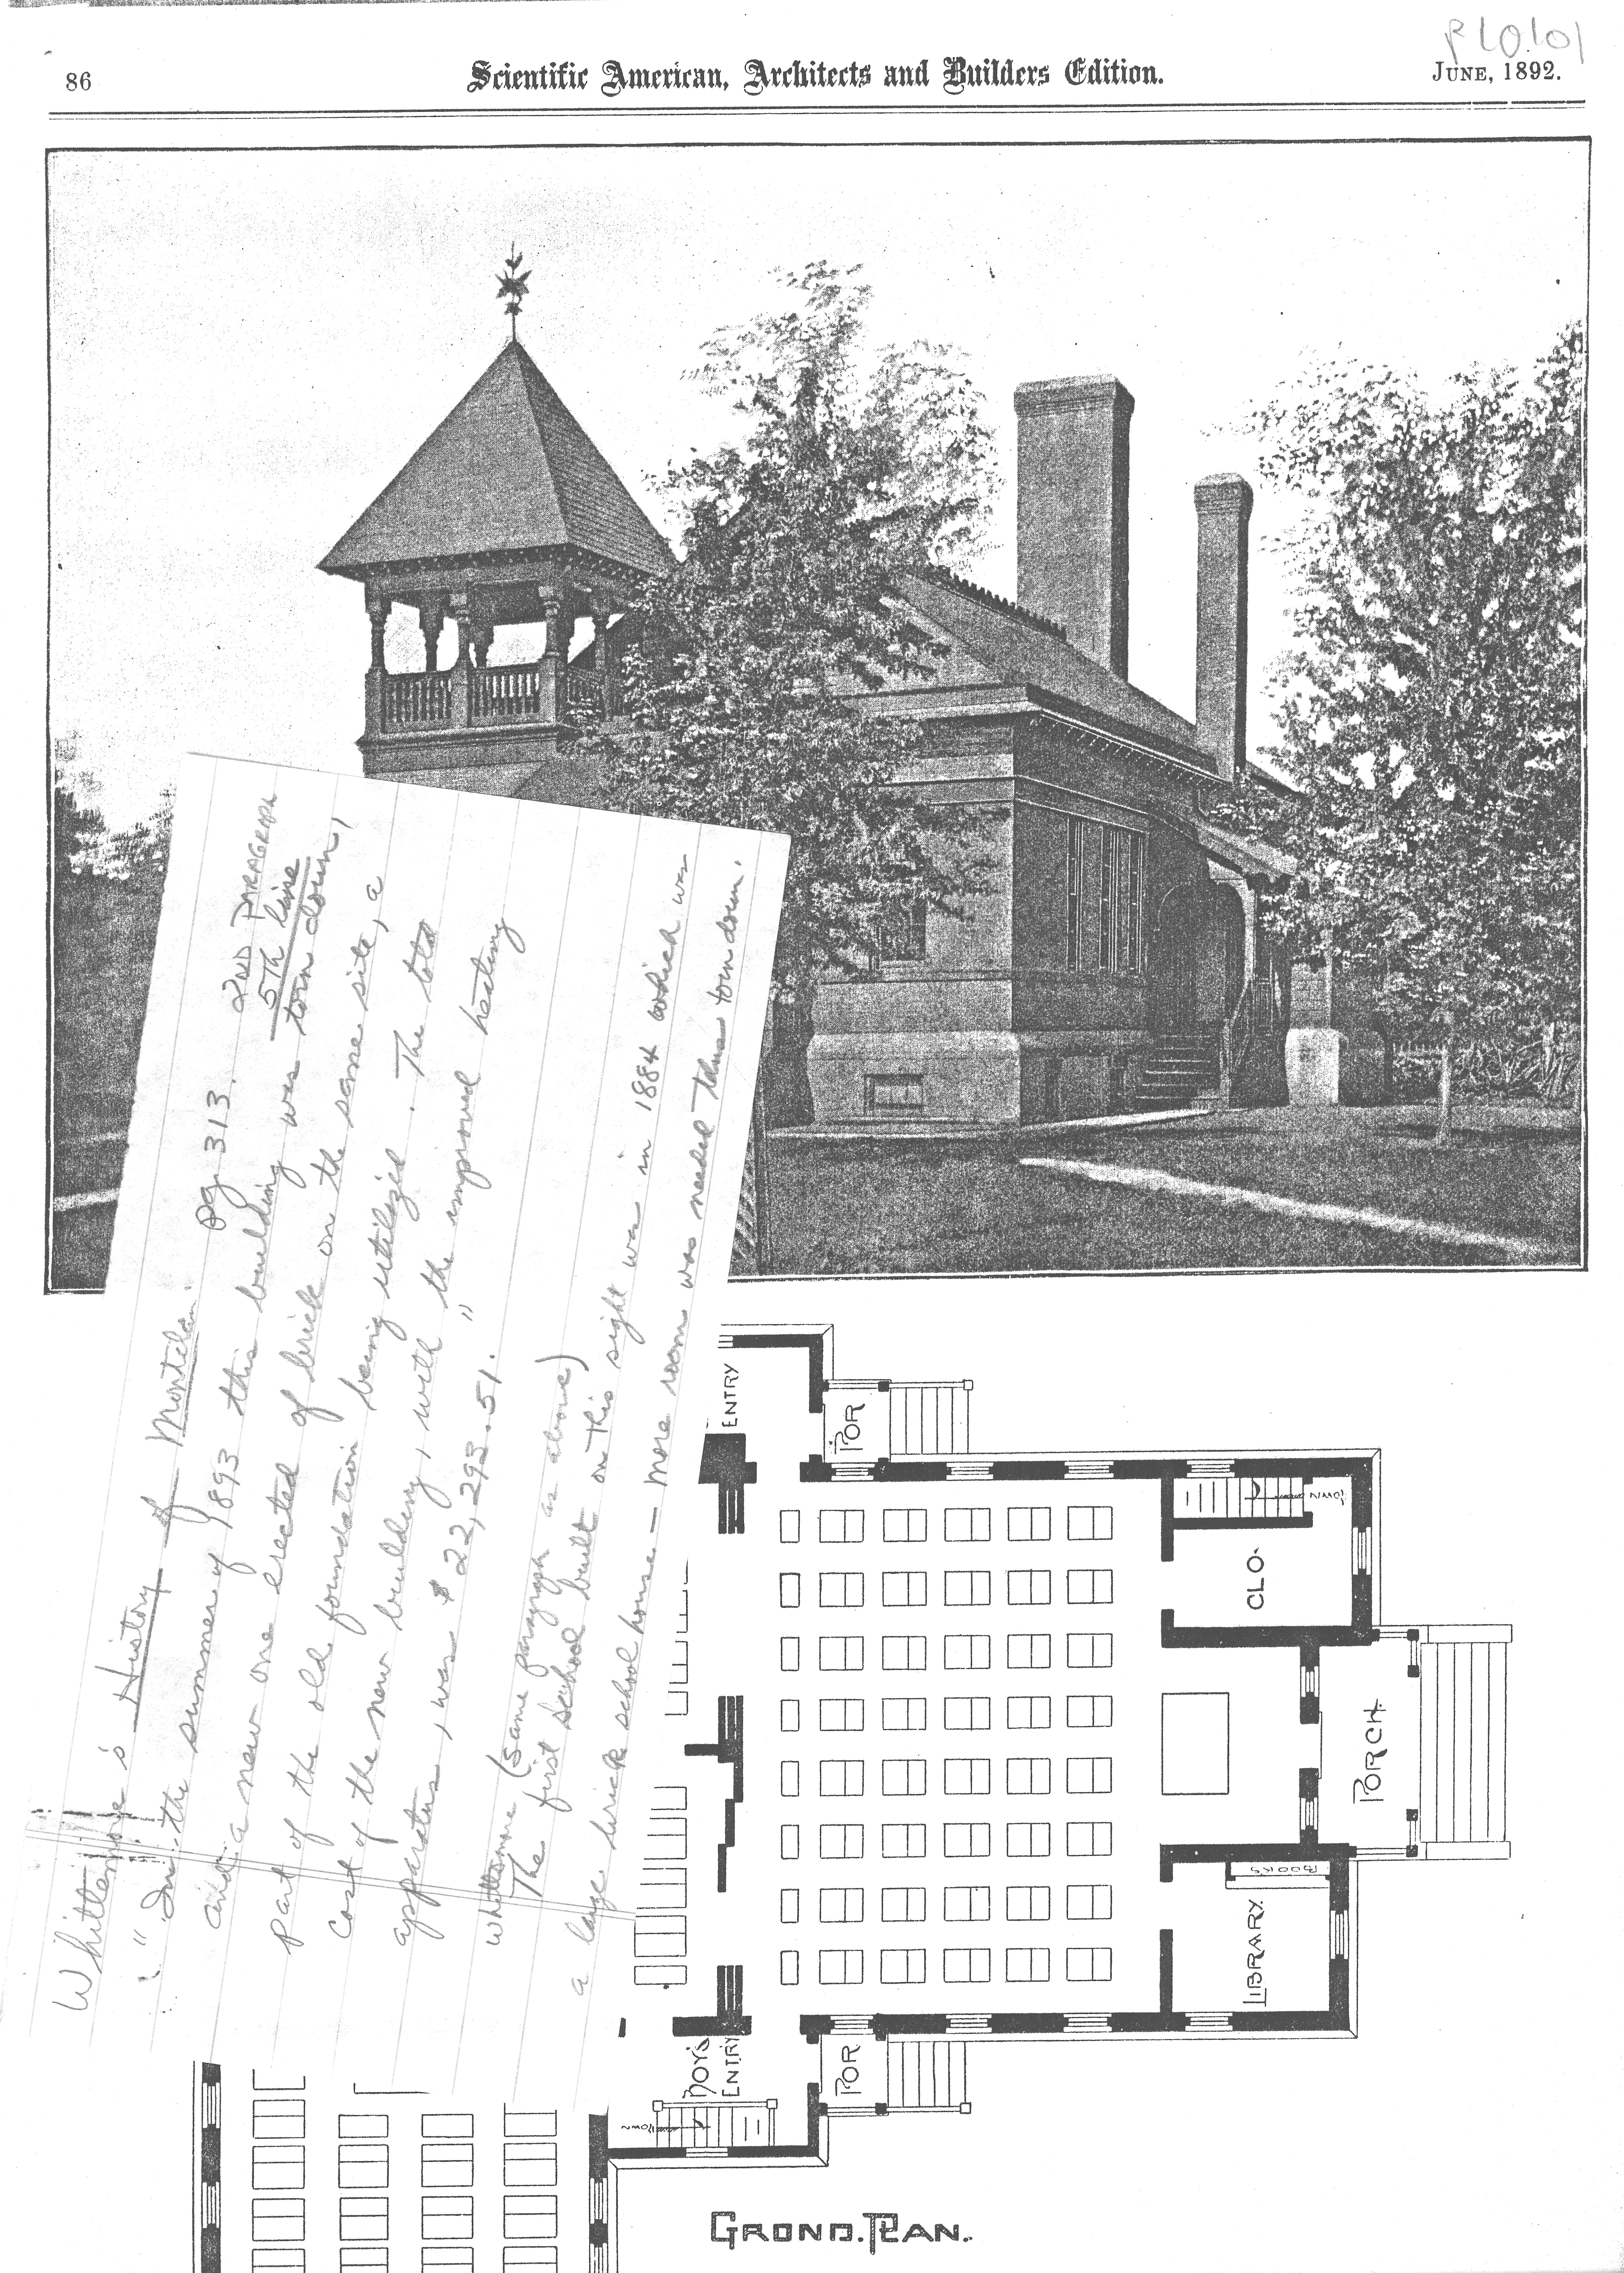 86
Scientific American, Architects and Builders Edition.
JUNE, 1892.
Whittemore's History of Montclair.
pg 313. 2ND PARAGRAPH
5th line
"In the summer of 1893 this building was torn down,
and a new one erected of brick on the same site, a
part of the old foundation being utilized. The total
cost of the new building, with the improved heating
apparatus, was $22,293.51."
Whittemore (same paragraph as above)
The first school built on this sight was in 1884 which was
a large brick school house — more room was needed thus torn down.
ENTRY
POR
DOWN
CLO.
PORCH.
BOOKS
LIBRARY.
BOYS
ENTRY
POR
DOWN
GROND. PLAN.